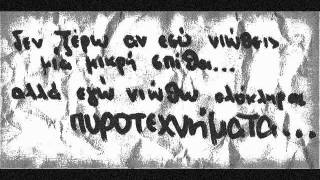 δεν ξέρω αν εσύ νιώθεις
μια μικρή σπίθα...
αλλά εγώ νιώθω ολόκληρα
πυροτεχνήματα...